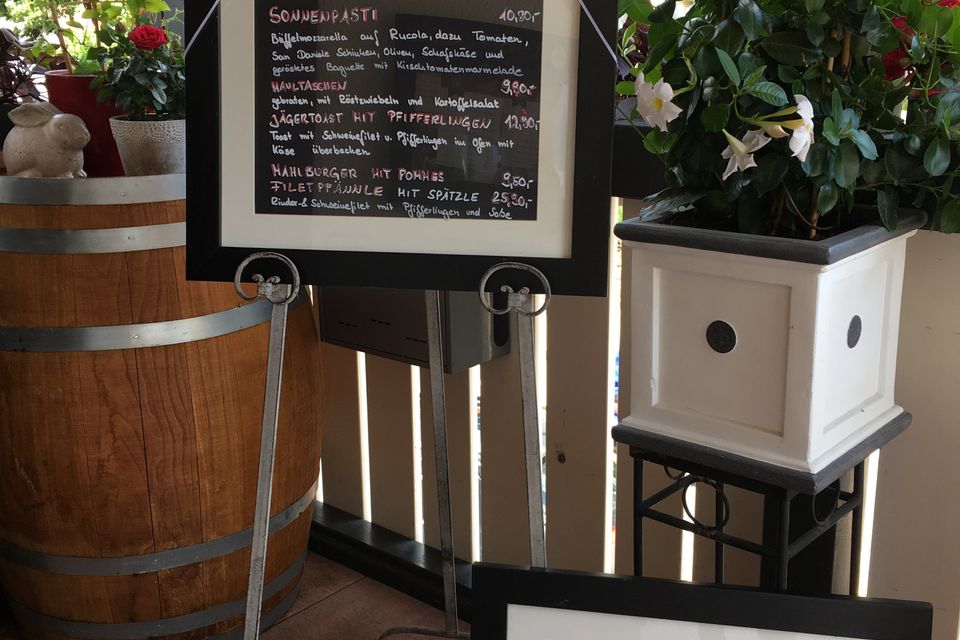 SONNENPASTI 10,90,-
Büffelmozzarella auf Rucola, dazu Tomaten,
San Daniele Schinken, Oliven, Schafskäse und
geröstetes Baguette mit Kirschtomatenmarmelade
MAULTASCHEN 9,90,-
gebraten, mit Röstzwiebeln und Kartoffelsalat
JÄGERTOAST MIT PFIFFERLINGEN 12,90,-
Toast mit Schweinefilet u. Pfifferlingen im Ofen mit
Käse überbacken
MAHLBURGER MIT POMMES 9,50,-
FILETPFÄNNLE MIT SPÄTZLE 25,90,-
Rinder- & Schweinefilet mit Pfifferlingen und Soße